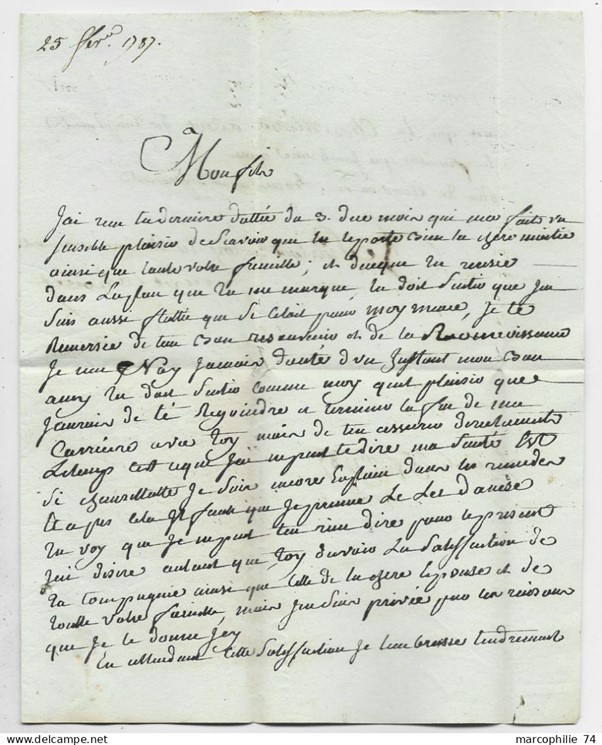 25 fevr. 1787.
Mon fils
J'ai reu ta derniere dattée du 3. du moin qui ma faite un
sensible plaisir de scavoir que tu te porte bien ta chere moitié
ainsi que toute votre famille; et de que tu
dans que tu me marque tu doit sentir que Jen
suis aussi flatté que si cetoit pour moy meme, Je te
Remersie de ton bon resouvenir et de la Reconnoissance
Je nen Nay Jamais douté d'un Jnstant mon bon
amy tu doit sentir comme moy quel plaisir que
Jaurois de té Rejoindre et terminer la fin de ma
Carriere avec toy main de ten assurer
Letemp cest ce que J'ai ne peut te dire ma Santé Est
Si Je suis encore dans les remedes
et apres cela Jl faut que Je prenne Le Let
tu voy que Je ne peut ten rien dire pour le present
Jai autant que toy davoir La Satisfaction de
ta Compagnie ainsi que celle de ta chere Epouse et de
toute votre famille, main Jen suis privée par les raisons
que Je te donne Jcy
En attendant cette Satisfaction Je tembrasse tendrement
marcophilie 74
delcampe.net